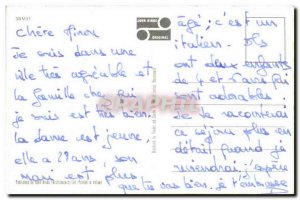 Chère
Je suis dans une
ville très agréable et
la famille che qui
je suis est très bien.
la dame est jeune.
elle a 29 ans, son
mari est plus
âgé; c'est un
italien. Ils
ont deux enfants
de 4 et 7 ans qui
sont adorables
Je te raconterai
ce séjour plus en
détail quand je
reviendrai; espère
que tu vas bien. je t'embrasse
JOHN HINDE
ORIGINAL